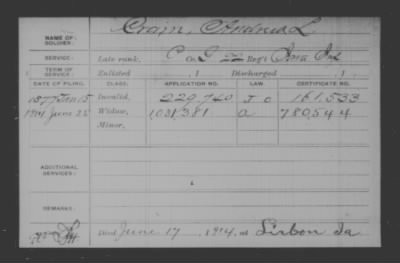 NAME OF SOLDIER: Crain, Andrew L.
SERVICE: Late rank, P Co. G 22 Reg't Iowa Inf
TERM OF SERVICE: Enlisted , 1 Discharged , 1
DATE OF FILING. CLASS. APPLICATION NO. LAW. CERTIFICATE NO.
1877 Jan 15 Invalid, 229,740 161,533
1914 June 25 Widow, 1031,381 780,544
Minor,
ADDITIONAL SERVICES:
REMARKS:
Died June 17, 1914, at Lisbon Ia